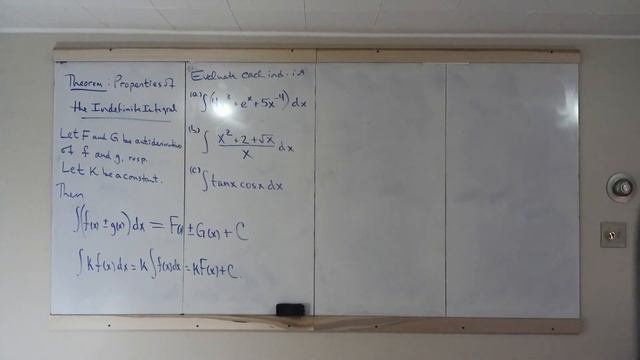 Theorem: Properties of
the Indefinite Integral
Let F and G be antiderivatives
of f and g, resp.
Let K be a constant.
Then
∫(f(x) ± g(x)) dx = F(x) ± G(x) + C
∫ K f(x) dx = K ∫ f(x) dx = K F(x) + C.
Evaluate each ind. int
(a) ∫( + eˣ + 5x⁻⁴) dx
(b) ∫ (x² + 2 + √x)/x dx
(c) ∫ tanx cosx dx